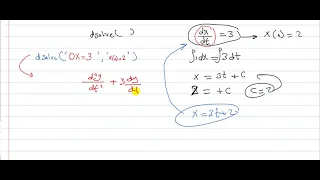 dsolve( )
dsolve('DX=3', 'x(0)=2')
d²y/dt² + 3 dy/dt
dx/dt = 3 → x(0) = 2
∫1dx = ∫3dt
x = 3t + C
2 = + C C=2
x = 3t+2